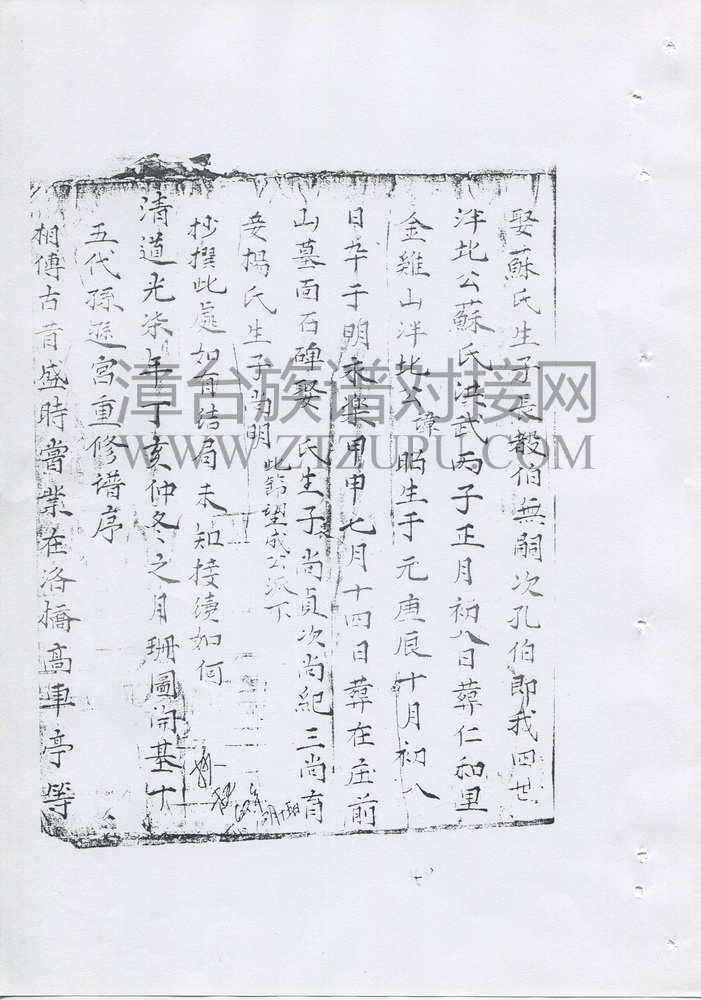 娶蘇氏生子長毅伯無嗣次孔伯即我四世
泮北公蘇氏洪武丙子正月初八日葬仁和里
金雞山泮北公諱昭生于元庚辰十月初八
日卒于明永樂甲申七月十四日葬在庄前
山墓面石碑娶 氏生子尚貞次尚紀三尚育
妾楊氏生子尚明 此篇望成公派下
抄撰此處如有結局未知接續如何
清道光柒年丁亥仲冬之月珊圖開基十
五代孫遜宮重修譜序
相傳古昔盛時嘗業在洛橋高車亭等
漳台族谱对接网
WWW.ZUZUPU.COM